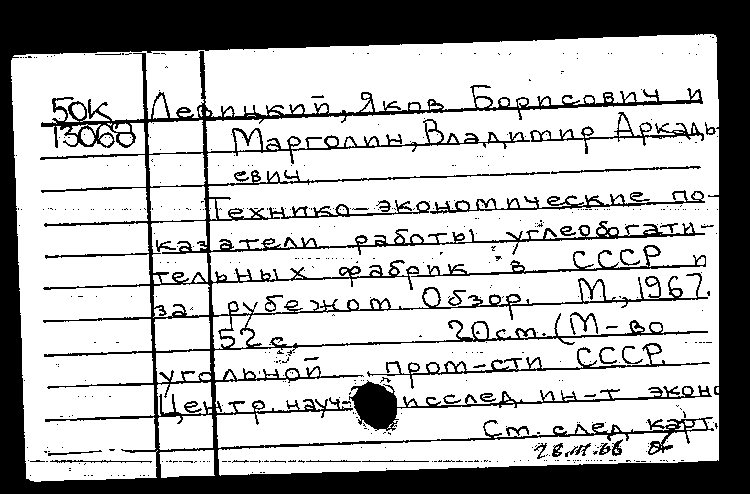 50К Левицкий, Яков Борисович и
13068 Марголин, Владимир Аркадь-
евич.
Технико-экономические по-
казатели работы углеобогати-
тельных фабрик в СССР и
за рубежом. Обзор. М., 1967.
52 с. 20 см. (М-во
угольной пром-сти СССР.
Центр. науч- исслед. ин-т экон
См. след. карт.